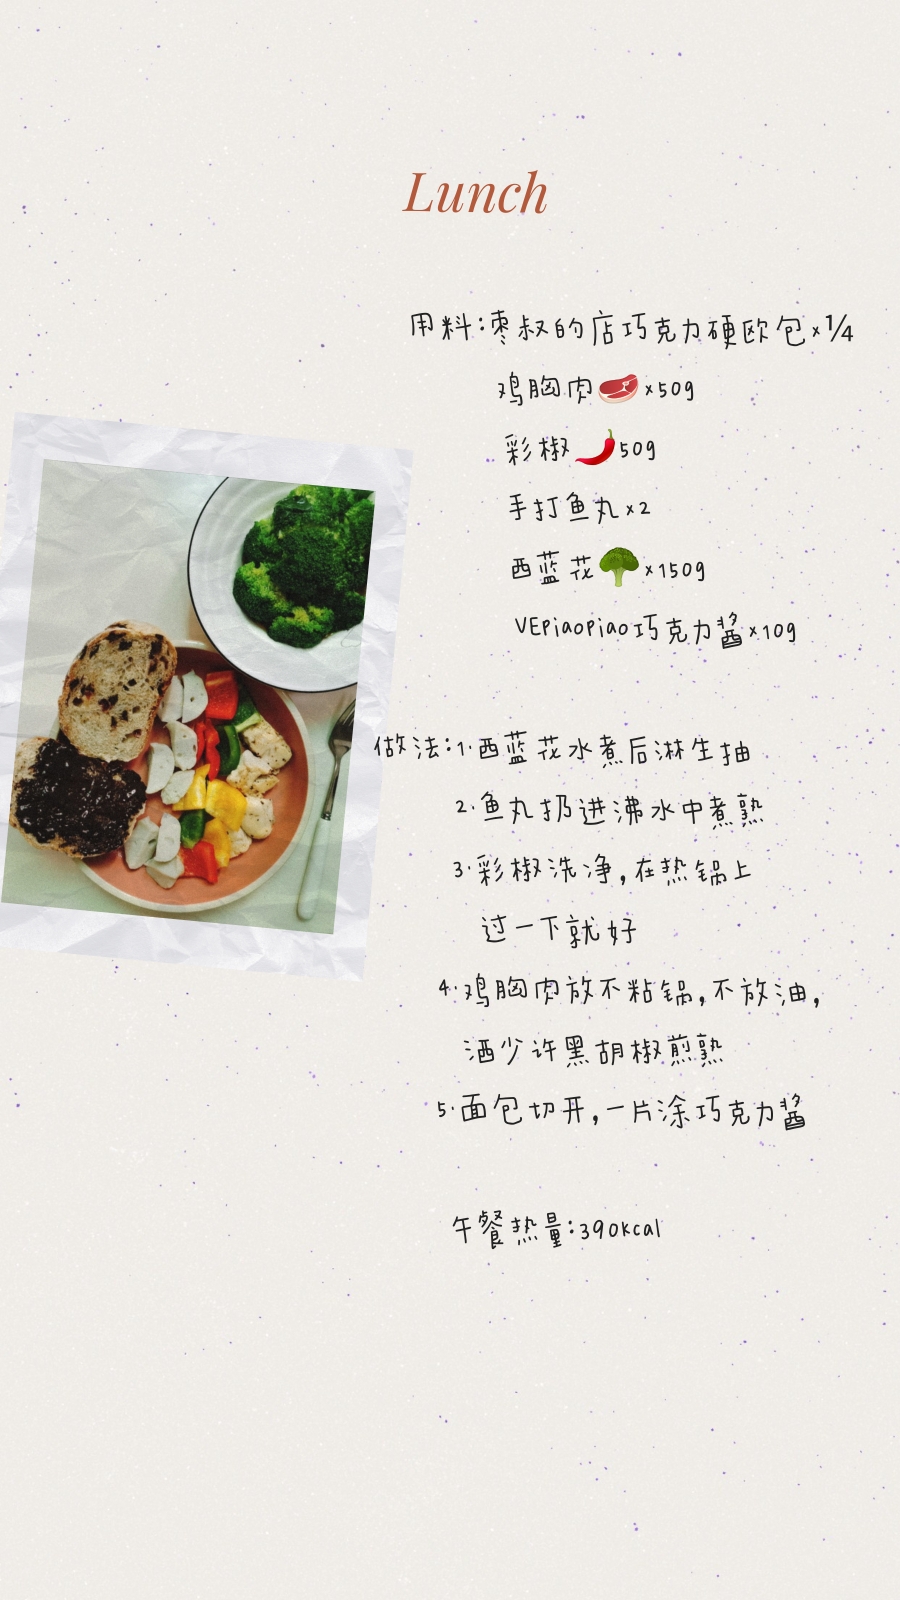 Lunch
用料:枣叔的店巧克力硬欧包×1/4
鸡胸肉🥩×50g
彩椒🌶️50g
手打鱼丸×2
西蓝花🥦×150g
VEpiaopiao巧克力酱×10g
做法:1.西蓝花水煮后淋生抽
2.鱼丸扔进沸水中煮熟
3.彩椒洗净,在热锅上
过一下就好
4.鸡胸肉放不粘锅,不放油,
洒少许黑胡椒煎熟
5.面包切开,一片涂巧克力酱
午餐热量:390kcal